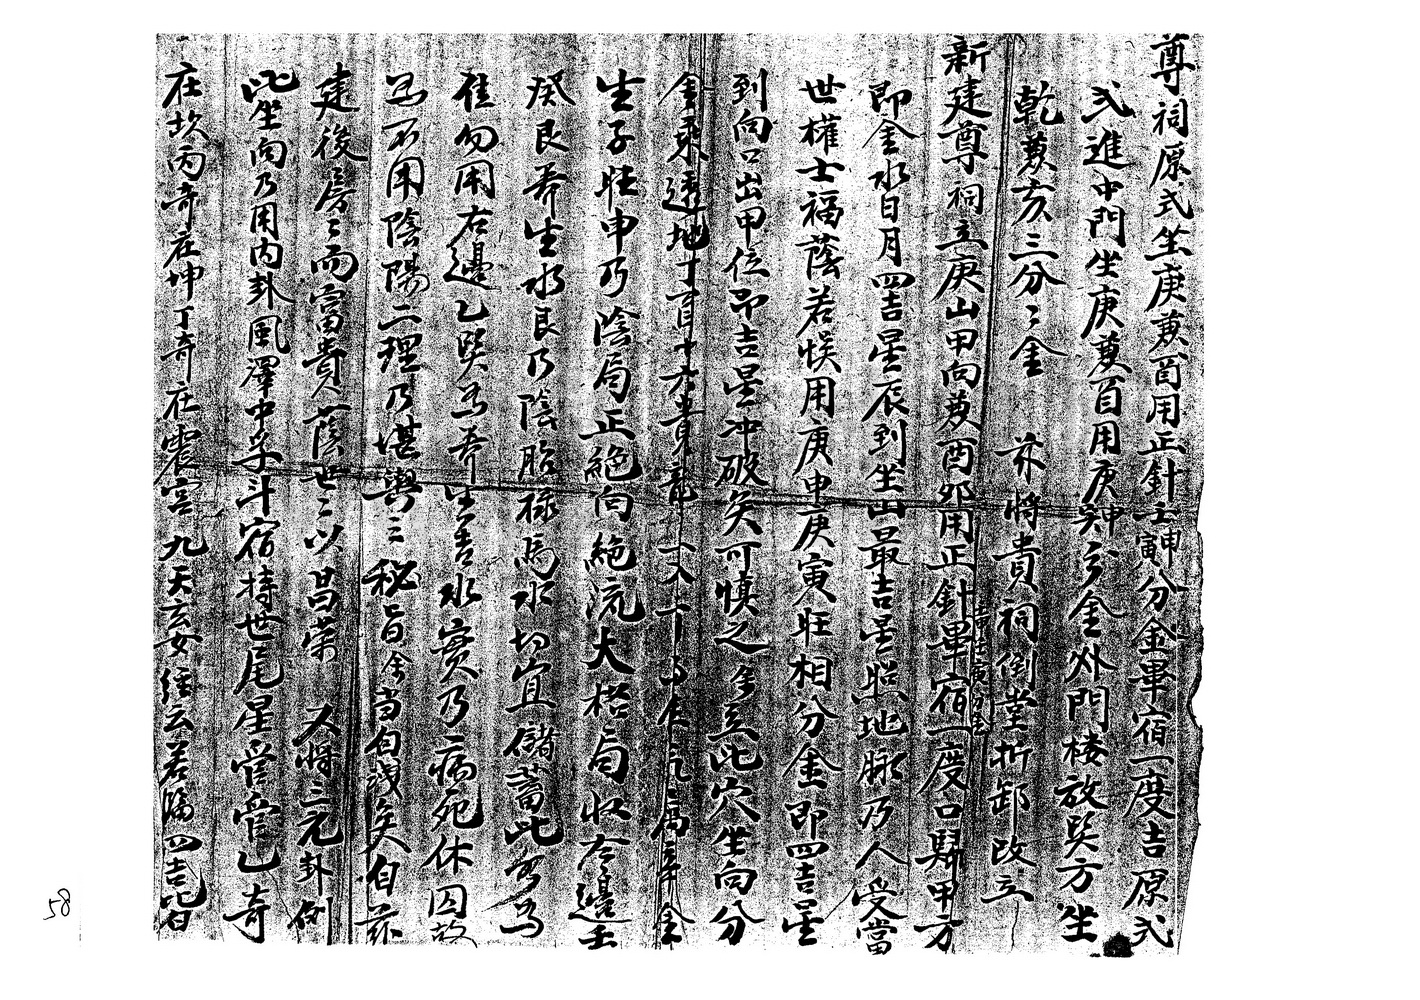 尊祠原式坐庚兼酉用正針壬申寅分金畢宿一度吉原式
式進中門坐庚兼酉用庚申分金外門樓放巽方坐
乾兼亥三分亡金 茲將貴祠倒堂折卸改立
新建尊祠立庚山甲向兼酉卯用正針畢宿一度口歸甲方
即金水日月四吉星辰到坐山最吉星照地脉乃人受當
世權士福蔭若悞用庚申庚寅旺相分金即四吉星
到向口出甲位即吉星冲破矣可慎之今立此穴坐向分
金乘透地丁
生子旺申乃陰局正絕向絕流大格局收右邊壬
癸艮養生水艮乃陰胎祿馬水切宜儲蓄此方為
佳勿用右邊乙巽為養生若水實乃病死休囚故
為不用陰陽二理乃堪輿三秘旨余尚自識矣自茲
建後房亡而富貴人蔭世亡以昌荣 又將三元卦例
此坐向乃用内卦風澤中孚斗宿持世尾星管管乙奇
在坎丙奇在坤丁奇在震宮九天玄女經云若臨四吉宿
58